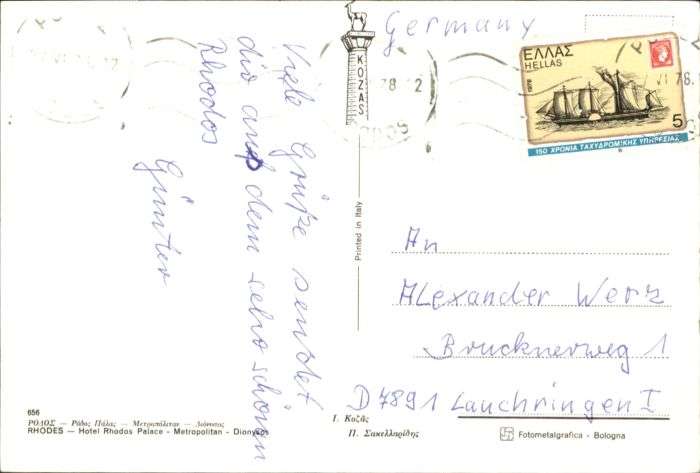 Viele Grüße sendet
dir aus dem sehr schönen
Rhodos
Günter
KOZAS
Germany
78
2
VI 78
ΕΛΛΑΣ
HELLAS
1978
5
150 ΧΡΟΝΙΑ ΤΑΧΥΔΡΟΜΙΚΗΣ ΥΠΗΡΕΣΙΑΣ
Printed in Italy
An
Alexander Werz
Brucknerweg 1
D 7891 Lauchringen I
656
ΡΟΔΟΣ — Ρόδος Πάλας — Μετροπόλιταν — Διόνυσος
RHODES — Hotel Rhodos Palace - Metropolitan - Dionysos
Ι. Κοζᾶς
Π. Σακελλαρίδης
Fotometalgrafica - Bologna